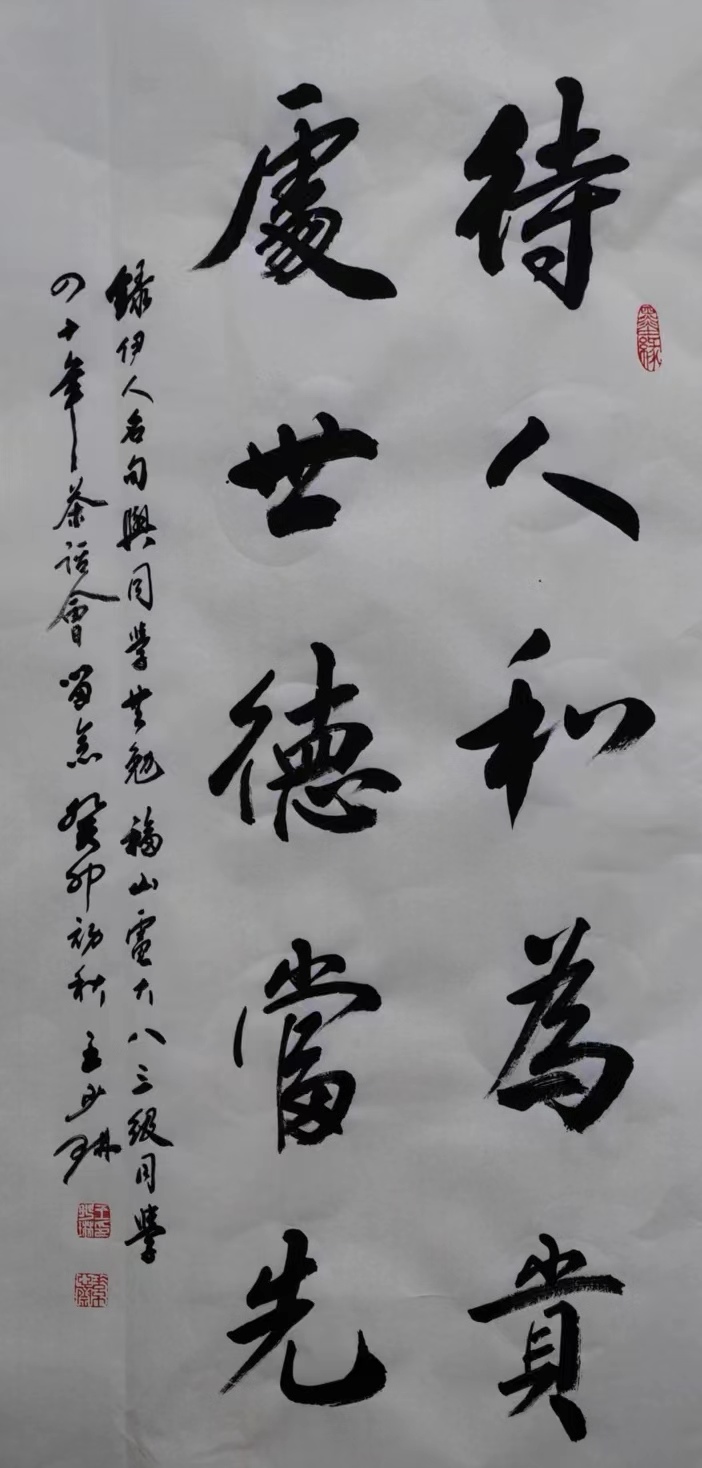 待人和為貴
處世德當先
錄伊人名句與同學共勉 福山電大八三級同學
四十年茶話會留念 癸卯初秋 王少琳
墨緣